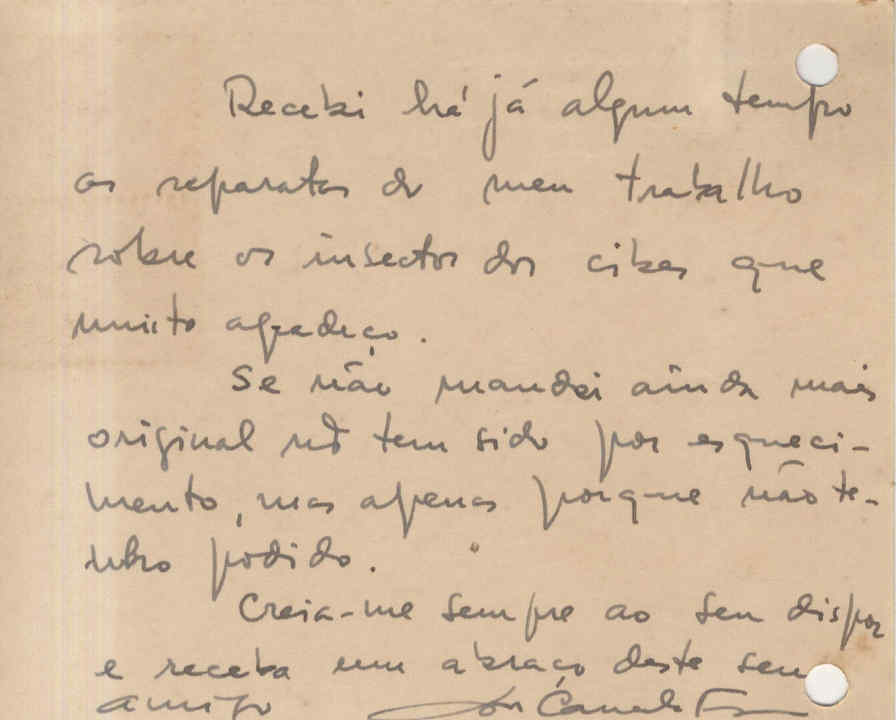 Recebi há já algum tempo
as separatas do meu trabalho
sobre os insectos dos
que
muito agradeço.
Se não mandei ainda mais
original não tem sido por esqueci-
mento, mas apenas porque não te-
nho podido.
Creia-me sempre ao seu dispor
e receba um abraço deste seu
amigo